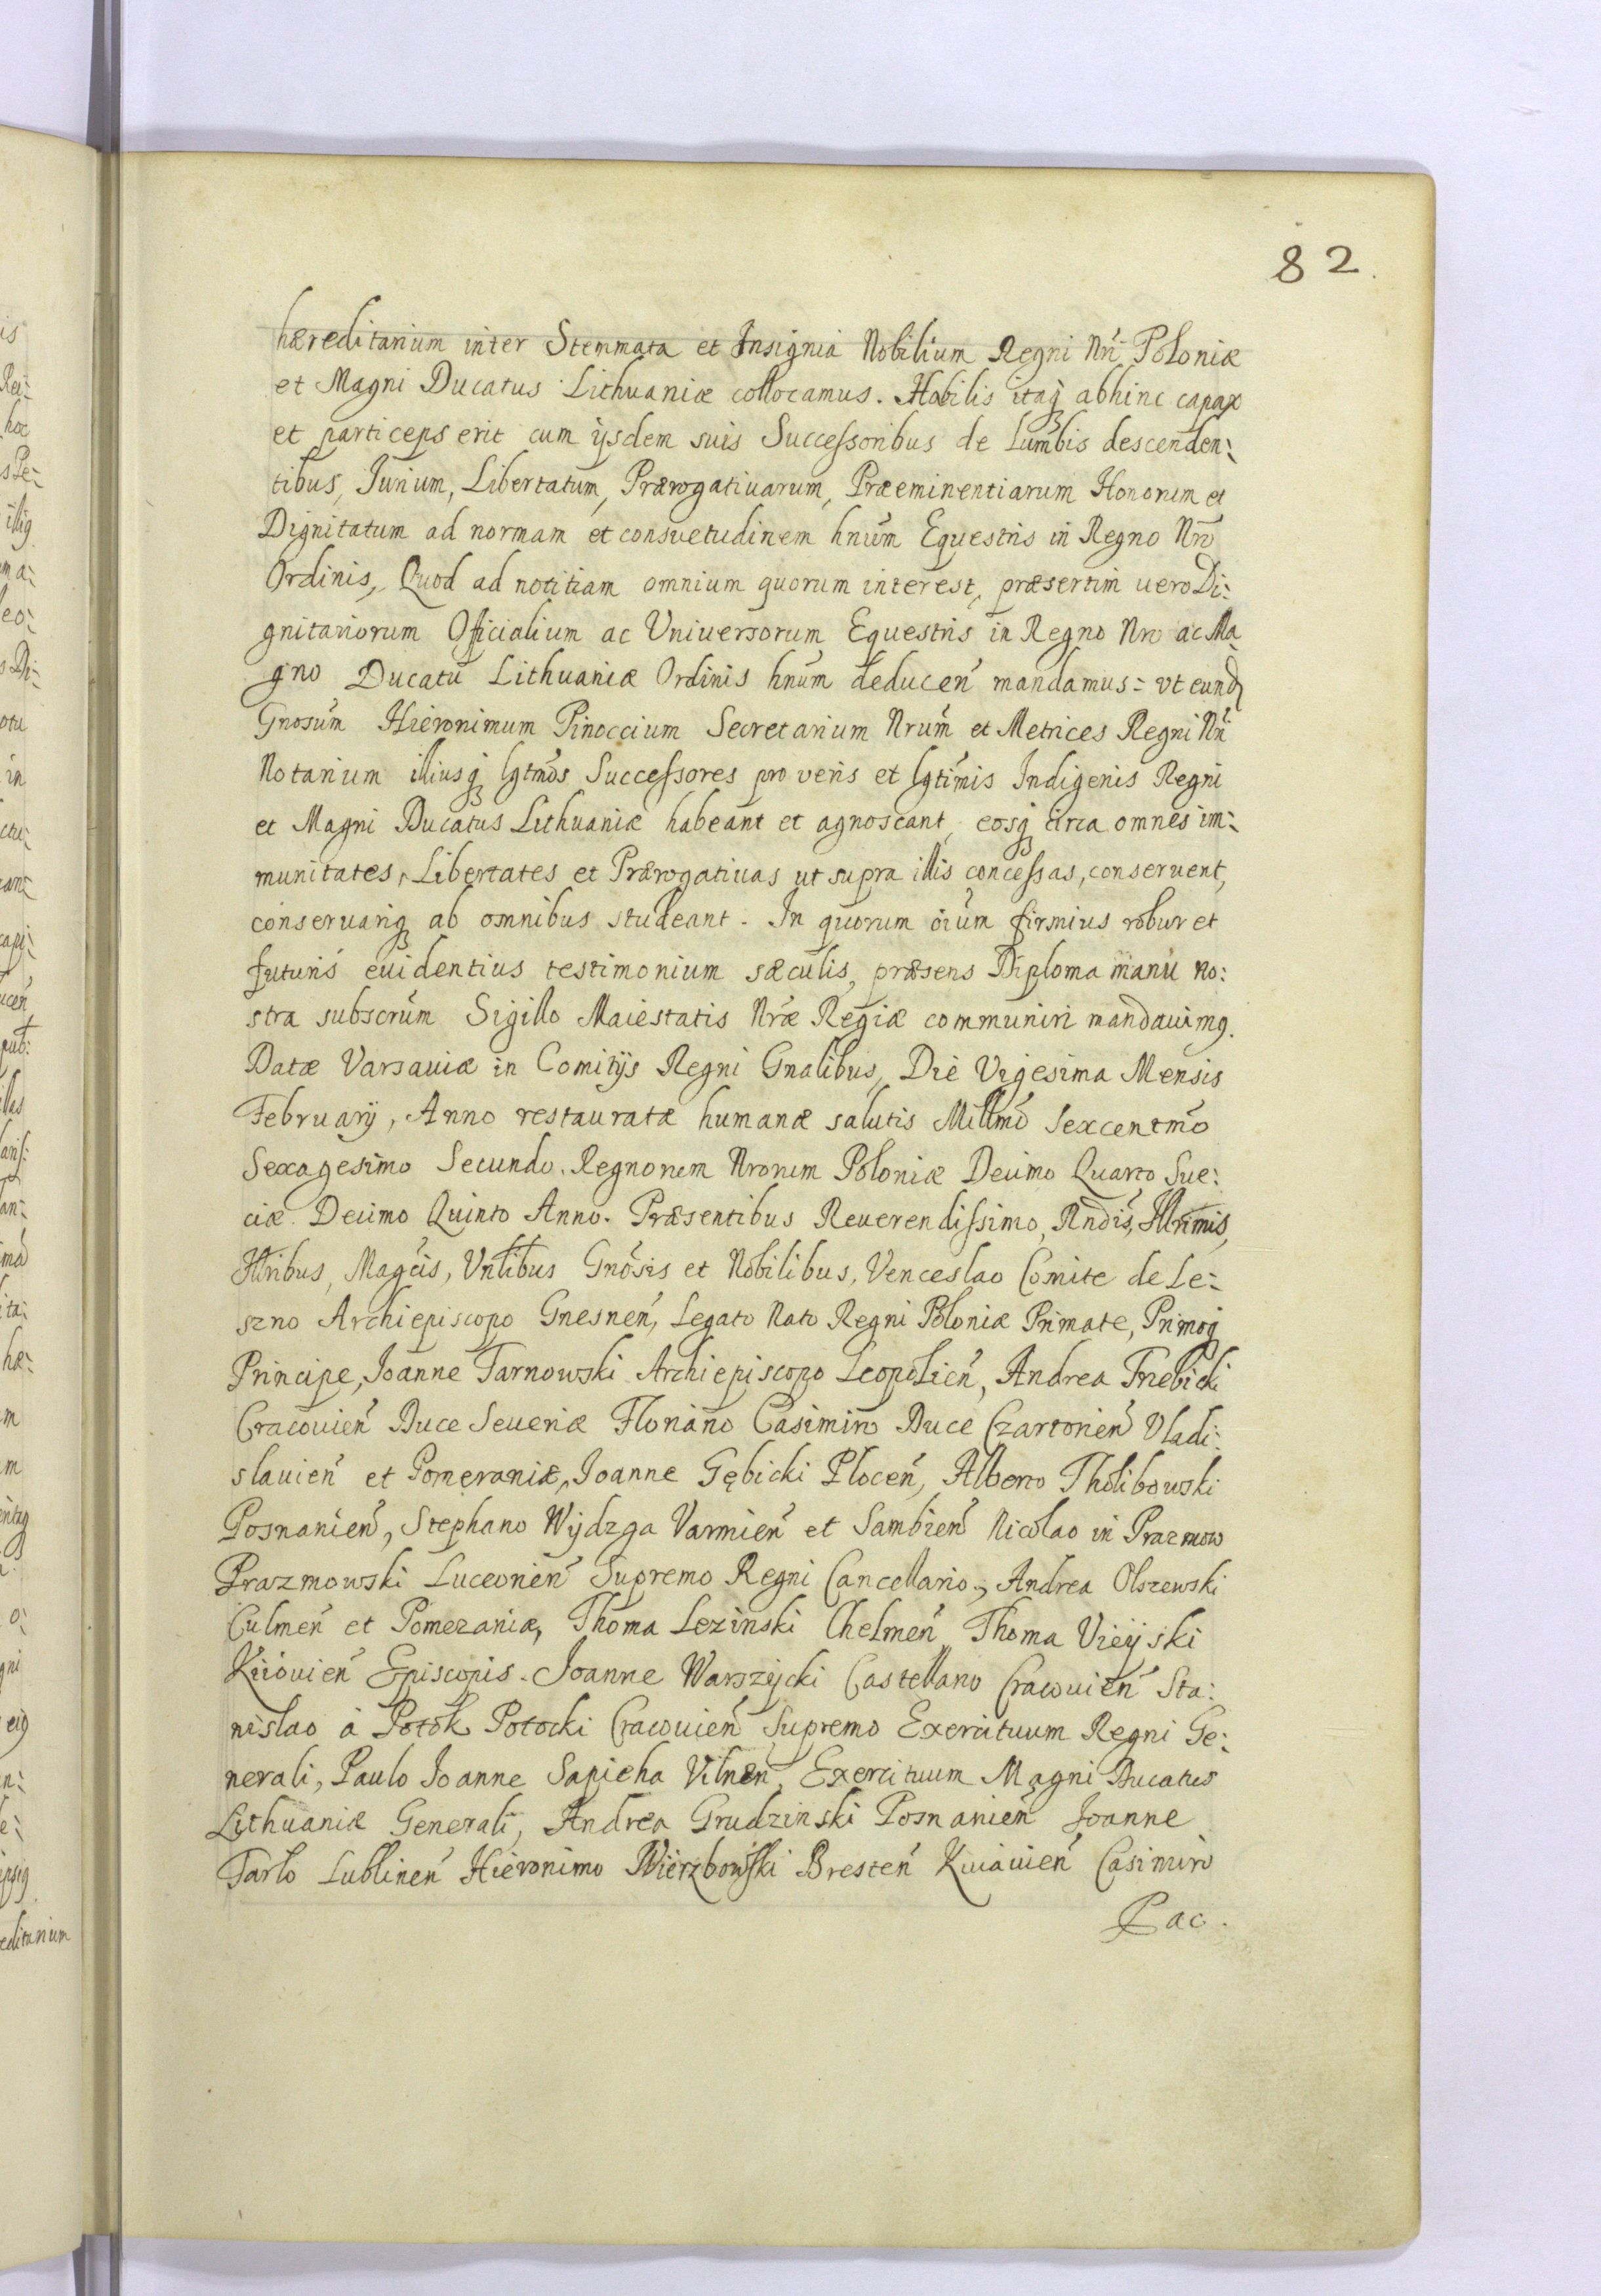 82.
hæreditarium inter Stemmata et Insignia Nobilium Regni Nri Poloniæ
et Magni Ducatus Lithuaniæ collocamus. Habilis itaq abhinc capax
et particeps erit cum ijsdem suis Successoribus de Lumbis descenden:
tibus, Jurium, Libertatum, Prærogatiuarum, Præeminentiarum Honorum et
Dignitatum ad normam et consuetudinem hnum Equestris in Regno Nro
Ordinis, Quod ad notitiam omnium quorum interest, præsertim uero Di:
gnitariorum Officialium ac Uniuersorum Equestris in Regno Nro ac Ma
gno Ducatu Lithuaniæ Ordinis hnum deducen mandamus: vt eund
Gnosum Hieronimum Pinoccium Secretarium Nrum et Metrices Regni Nri
Notarium illiusq lgtmos Successores pro veris et lgtimis Indigenis Regni
et Magni Ducatus Lithuaniæ habeant et agnoscant, eosq circa omnes im:
munitates, Libertates et Prærogatiuas ut supra illis concessas, conseruent,
conseruariq ab omnibus studeant. In quorum oium firmius robur et
futuris euidentius testimonium sæculis, præsens Diploma manu no:
stra subscrum Sigillo Maiestatis Nræ Regiæ communiri mandauimg.
Datæ Varsauiæ in Comitijs Regni Gnalibus, Die Vigesima Mensis
February, Anno restauratæ humanæ salutis Millmo Sexcentmo
Sexagesimo Secundo. Regnorum Nrorum Poloniæ Decimo Quarto Sue:
ciæ Decimo Quinto Anno. Præsentibus Reuerendissimo, Rndis, Illrimis,
Illribus, Magcis, Vnlibus Gnosis et Nobilibus, Venceslao Comite de Le:
szno Archiepiscopo Gnesnen, Legato Nato Regni Poloniæ Primate, Primoq
Principe, Joanne Tarnowski Archiepiscopo Leopolien, Andrea Trzebicki
Cracouien Duce Seueriæ Floriano Casimiro Duce Czartorien Vladi:
slauien et Pomeraniæ, Joanne Gębicki Plocen, Alberto Tholibowski
Posnanien, Stephano Wydzga Varmien et Sambien Nicolao in Prazmow
Prazmowski Luceorien Supremo Regni Cancellario, Andrea Olszewski
Culmen et Pomezaniæ, Thoma Lezinski Chelmen Thoma Vieyski
Kiiouien Episcopis. Joanne Warszycki Castellano Cracouien Sta:
nislao à Potok Potocki Cracouien Supremo Exercituum Regni Ge:
nerali, Paulo Joanne Sapieha Vilnen, Exercituum Magni Ducatus
Lithuaniæ Generali, Andrea Grudzinski Posnanien Joanne
Tarlo Lublinen Hieronimo Wierzbowski Bresten Kuiauien Casimiro
Pac.